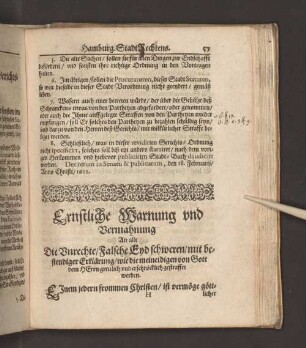 Hamburg. Stadt Rechtens. 57
5. Die alte Sachen / sollen für für allen Dingen zur Endschafft
befördert / und sonsten ihre richtige Ordnung in den Vorträgen
halten.
6. Im übrigen sollen die Procuratoren, dieser Stadt Statuten,
so weit dieselbe in dieser Stadt Verordnung nicht geendert / gemäß
7. Wofern auch einer betreten würde / der über die Gebühr deß
von den Partheyen abgefordert / oder genommen /
oder auch die Ihme aufferlegte Straffen von den Partheyen wieder
empfangen / soll Er solches den Partheyen zu bezahlen schuldig seyn /
und darzu von den Herren des Gerichts / mit willkürlicher Straffe beleget
werden.
8. Schließlich / was in dieser revidirten Gerichts-Ordnung
nicht specificiret, solches soll biß zur andern / nach dem vorigen
Herkommen und hiebevor publicirten Stadt-Buch decidiret
werden. Decretum in Senatu & publicatum, d. 18. Februarii,
Anno Christi, 1622.
Ernstliche Warnung vnd
Vermahnung
An alle
Die Unrechte / Falsche Eyd schweren / mit bestendiger
Erklärung / wie die meineidigen von Gott
dem HErrn greulich und erschröcklich gestraffet
werden.
EInem jedern frommen Christen / ist vermöge göttlicher
H